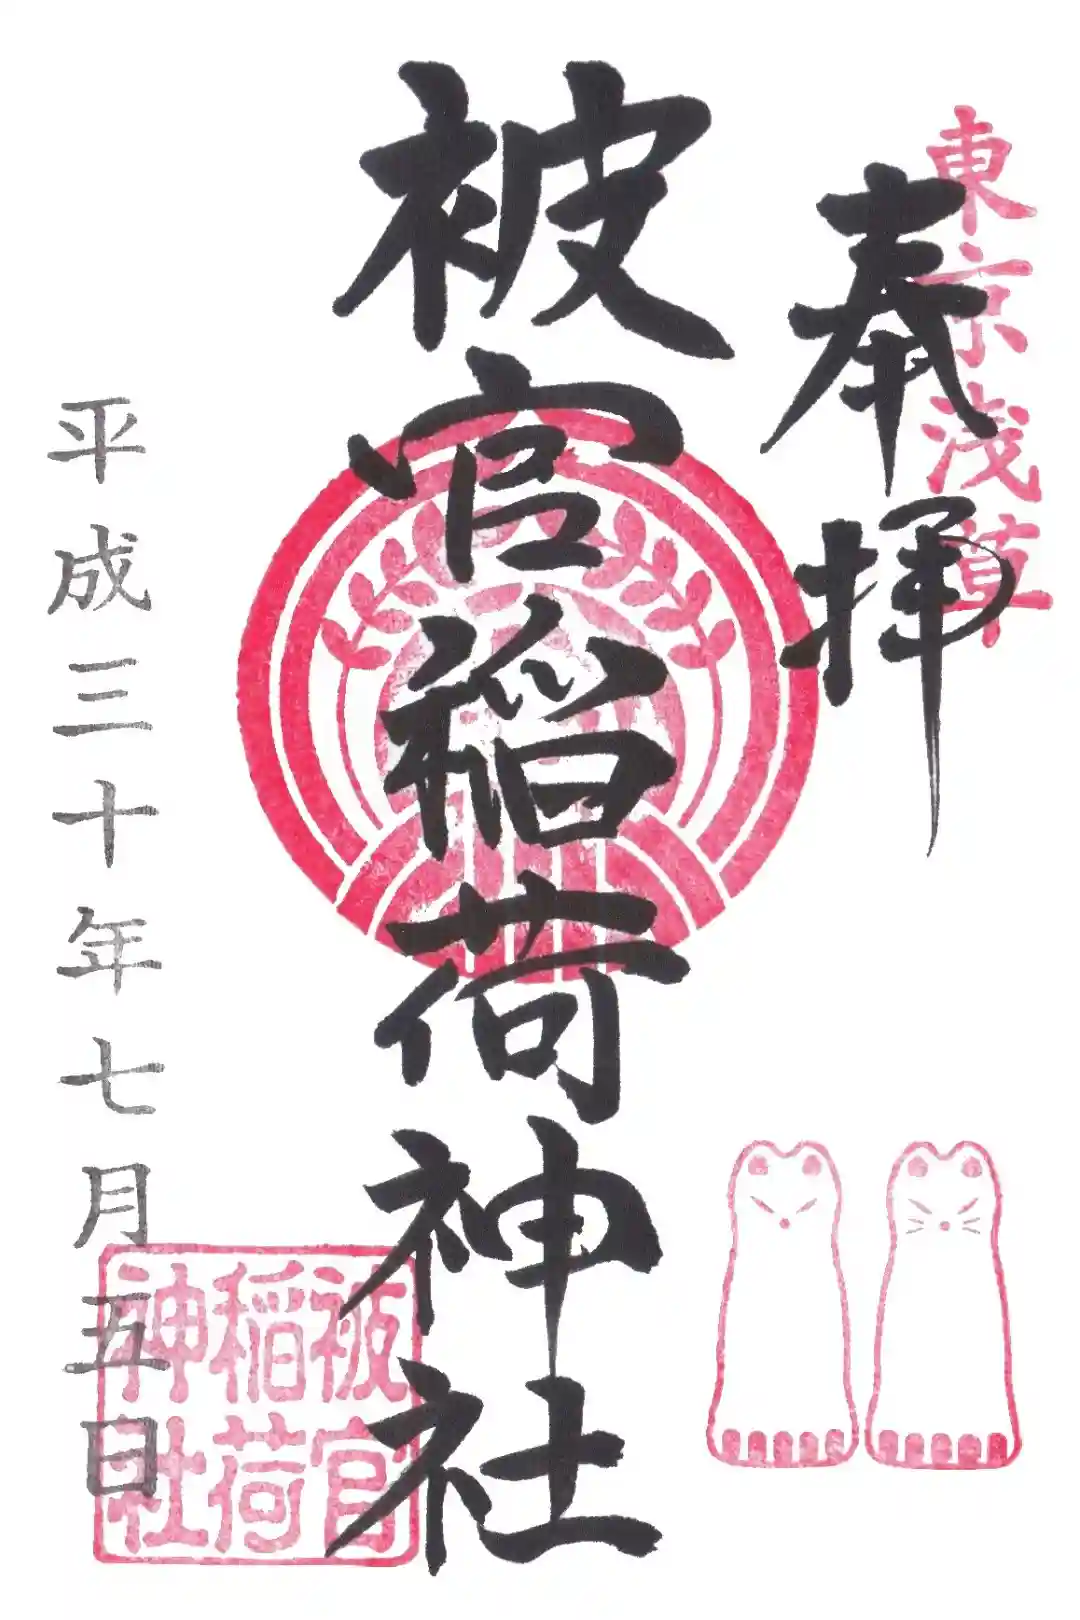 東京浅草
奉拝
被官稲荷神社
平成三十年七月五日
被官
稲荷
神社